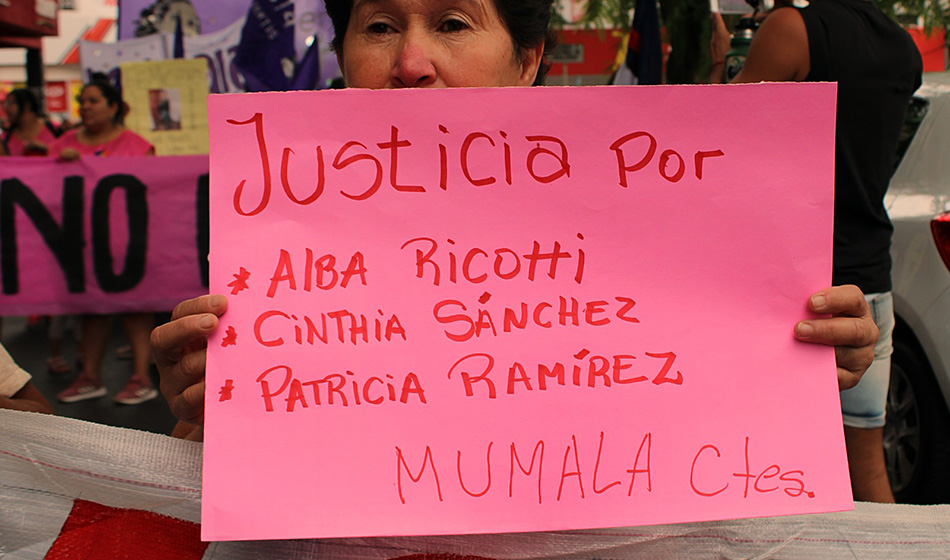 Justicia por
* Alba Ricotti
* Cinthia Sánchez
* Patricia Ramírez
MUMALA Ctes.
NO